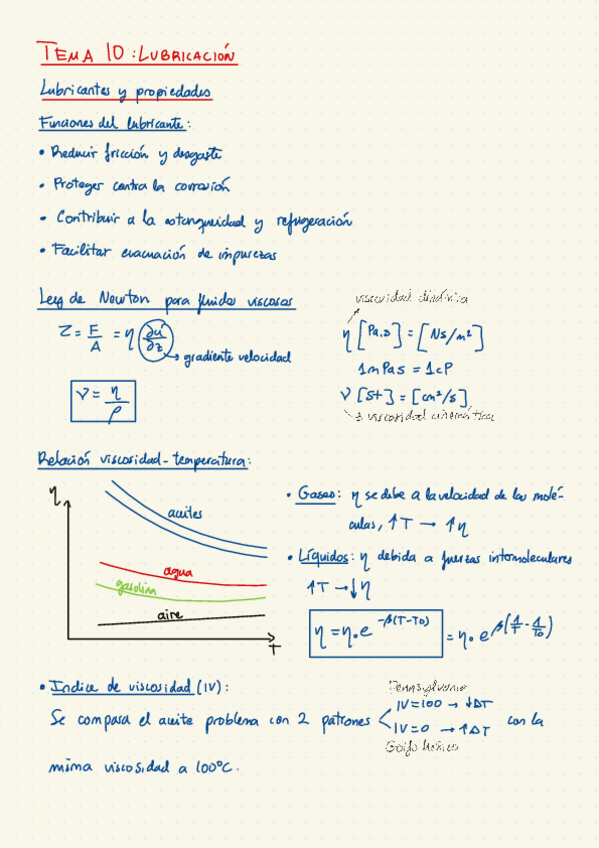 TEMA 10: LUBRICACIÓN
Lubricantes y propiedades
Funciones del lubricante:
• Reducir fricción y desgaste
• Proteger contra la corrosión
• Contribuir a la estanqueidad y refrigeración
• Facilitar evacuación de impurezas
Ley de Newton para fluidos viscosos
viscosidad dinámica
τ = F/A = η ∂u/∂z
→ gradiente velocidad
η [Pa.s] = [Ns/m²]
1mPas = 1cP
ν = η/ρ
ν [St] = [cm²/s]
→ viscosidad cinemática
Relación viscosidad-temperatura:
η
aceites
agua
gasolina
aire
T
• Gases: η se debe a la velocidad de las molé-
culas, ↑T → ↑η
• Líquidos: η debida a fuerzas intermoleculares
↑T → ↓η
η = η₀ e^-β(T-T0) = η₀ e^β(1/T - 1/T0)
• Indice de viscosidad (IV):
Pennsylvania
IV=100 → ↓ΔT
Se compara el aceite problema con 2 patrones < con la
IV=0 → ↑ΔT
Golfo México
misma viscosidad a 100°C.